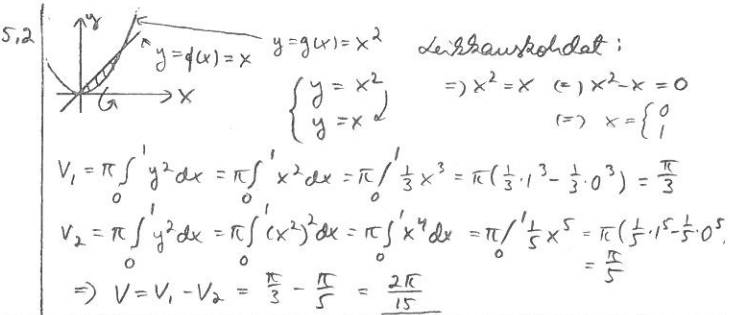 5.2
y
y=f(x)=x
x
y=g(x)=x²
{ y = x²
y = x
Leikkauskohdat:
=> x² = x <=> x² - x = 0
<=> x = { 0
1
V₁ = π ∫₀¹ y² dx = π ∫₀¹ x² dx = π /₀¹ 1/3 x³ = π(1/3 · 1³ - 1/3 · 0³) = π/3
V₂ = π ∫₀¹ y² dx = π ∫₀¹ (x²)² dx = π ∫₀¹ x⁴ dx = π /₀¹ 1/5 x⁵ = π(1/5 · 1⁵ - 1/5 · 0⁵
= π/5
=> V = V₁ - V₂ = π/3 - π/5 = 2π/15